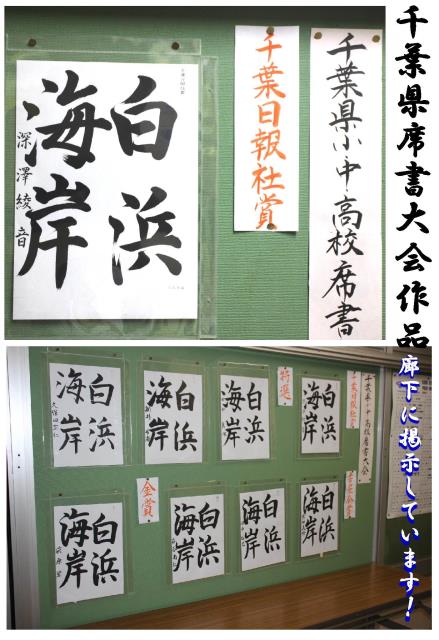 千葉県席書大会作品
千葉県小中高校席書
千葉日報社賞
白浜
海岸
深澤綾音
廊下に掲示しています！
千葉県小中高校席書大会
千葉日報社賞
白浜
海岸
特選
白浜
海岸
白浜
海岸
白浜
海岸
書星会賞
白浜
海岸
白浜
海岸
白浜
海岸
金賞
白浜
海岸